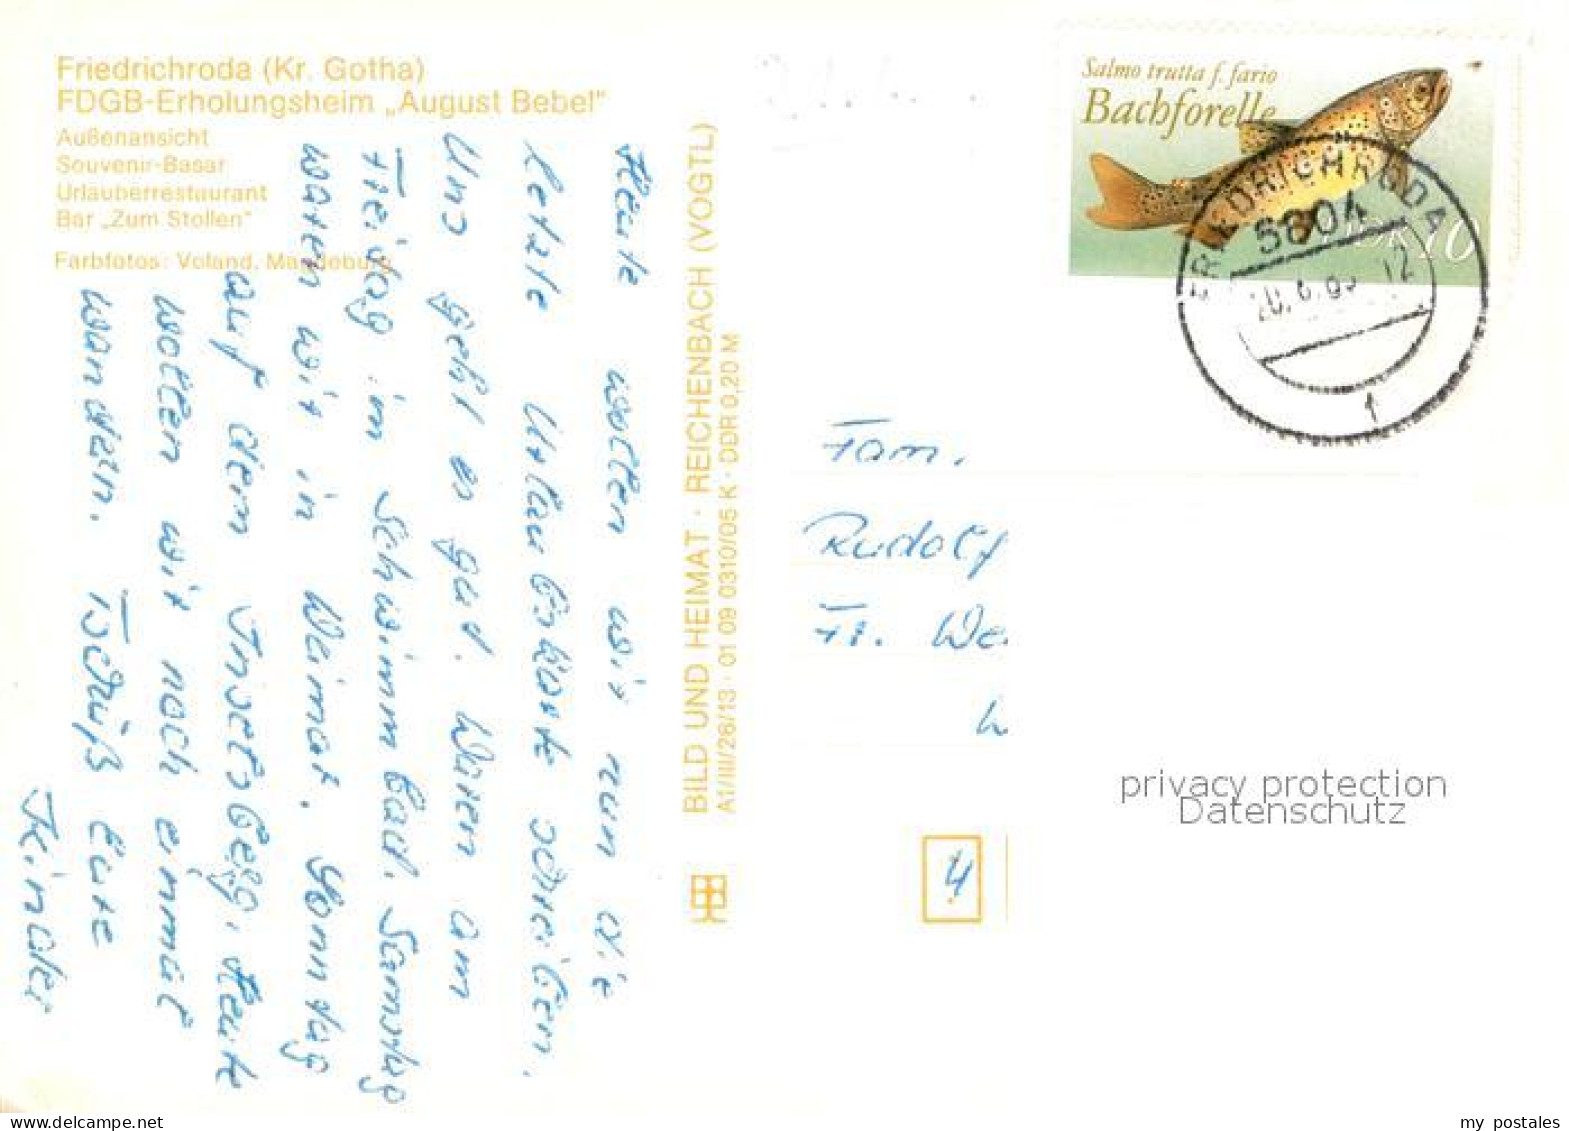 Friedrichroda (Kr. Gotha)
FDGB-Erholungsheim „August Bebel"
Außenansicht
Souvenir-Basar
Urlauberrestaurant
Bar „Zum Stollen"
Farbfotos: Voland, Magdeburg
Heute wollen wir nun die
letzte Urlaubskarte schreiben.
Uns geht es gut. Waren am
Freitag im Schwimmbad. Samstag
waren wir in Weimar. Sonntag
auf dem Inselsberg. Heute
wollen wir noch einmal
wandern. Tschüß Eure
Kinder
BILD UND HEIMAT · REICHENBACH (VOGTL)
A1/III/26/13 · 01 09 0310/05 K · DDR 0,20 M
Salmo trutta f. fario
Bachforelle
DDR 10
FRIEDRICHRODA
5804
12
1
Fam.
Rudolf
Fr. We
privacy protection
Datenschutz
4
my postales